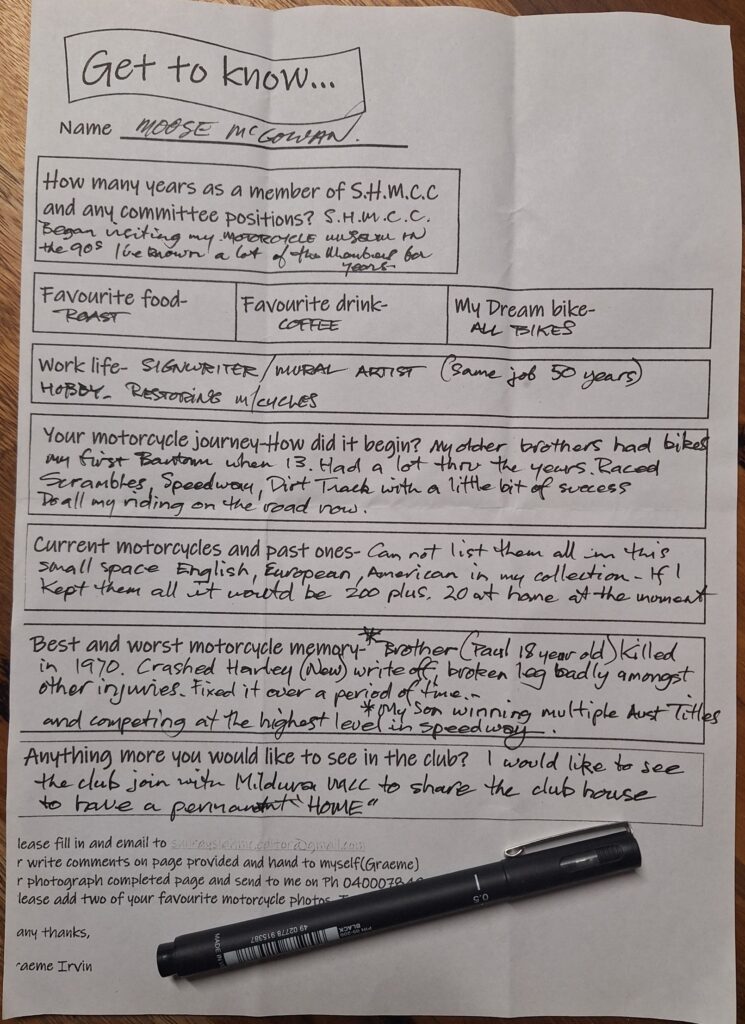 Get to know...
Name MOOSE McGOWAN.
How many years as a member of S.H.M.C.C
and any committee positions? S.H.M.C.C.
Began visiting my MOTORCYCLE MUSEUM IN
the 90s I've known a lot of the Members for
years
Favourite food-
ROAST
Favourite drink-
COFFEE
My Dream bike-
ALL BIKES
Work life- SIGNWRITER/MURAL ARTIST (Same job 50 years)
HOBBY- RESTORING M/CYCLES
Your motorcycle journey-How did it begin? My older brothers had bikes
my first Bantam when 13. Had a lot thru the years. Raced
Scrambles, Speedway, Dirt Track with a little bit of success
Do all my riding on the road now.
Current motorcycles and past ones- Can not list them all in this
small space English, European, American in my collection - If I
kept them all it would be 200 plus. 20 at home at the moment
Best and worst motorcycle memory-* Brother (Paul 18 year old) killed
in 1970. Crashed Harley (New) write off, broken leg badly amongst
other injuries. Fixed it over a period of time.-
*My Son winning multiple Aust Titles
and competing at the highest level in speedway.
Anything more you would like to see in the club? I would like to see
the club join with Mildura VMCC to share the club house
to have a permanent "HOME"
lease fill in and email to
r write comments on page provided and hand to myself(Graeme)
r photograph completed page and send to me on Ph 040007
lease add two of your favourite motorcycle photos.
any thanks,
raeme Irvin
0.5
PIN 05-200
BLACK
49 02778 915387
MADE IN